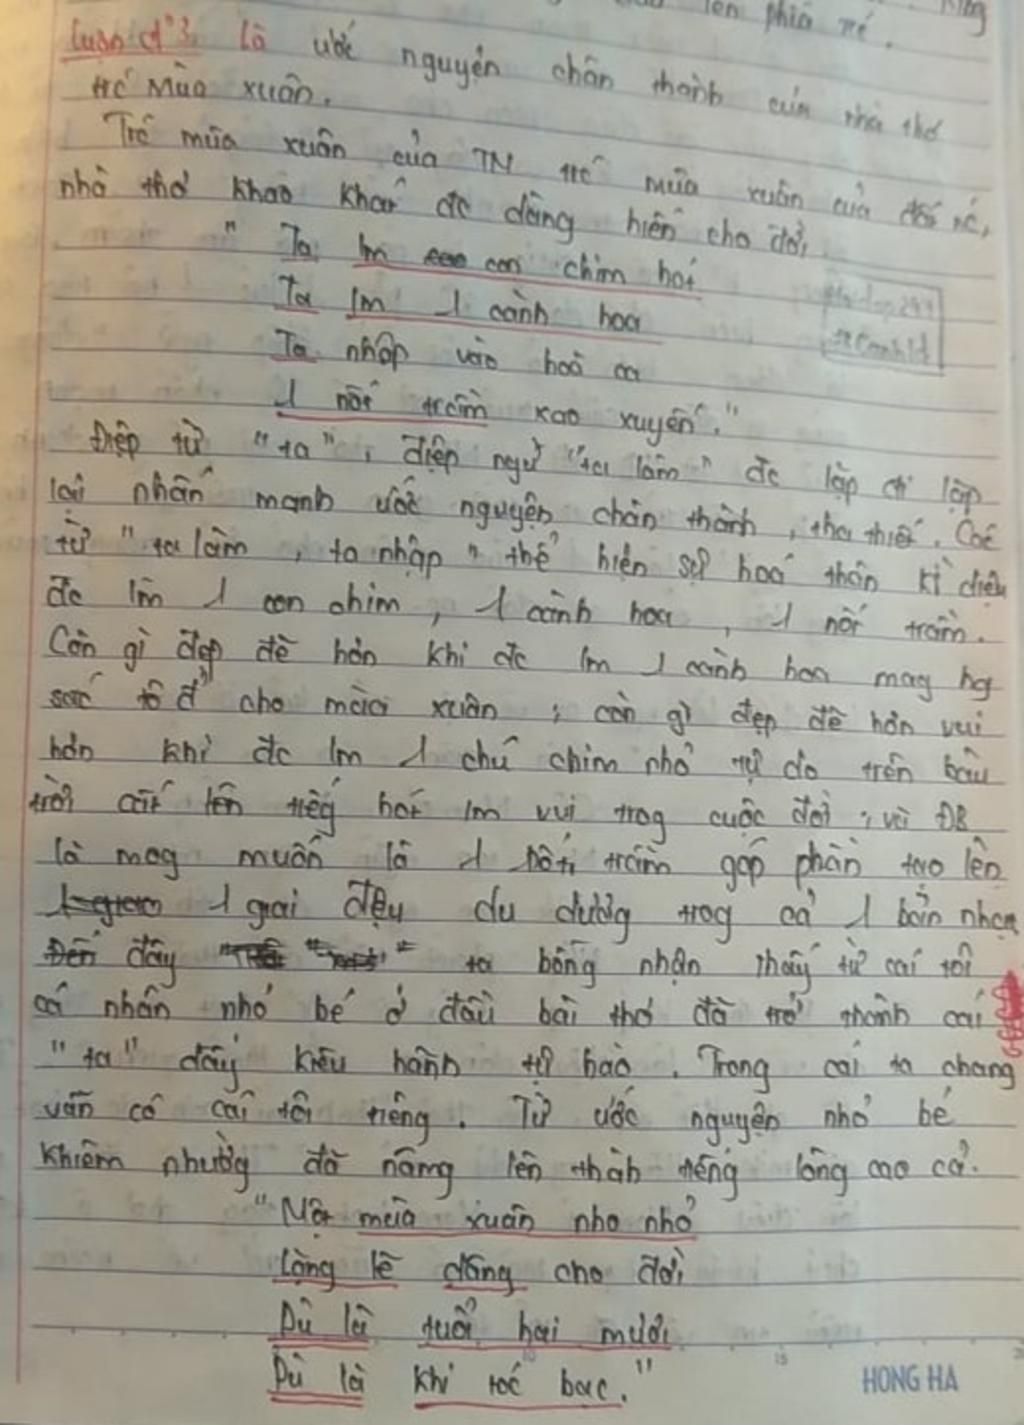 lên phía
Luận đ' 3. Là ước nguyện chân thành của nhà thơ
trc mùa xuân.
Trc mùa xuân của TN trc mùa xuân của đất nc,
nhà thơ khao khát đc dâng hiến cho đời
" Ta lm con chim hót
Ta lm 1 cành hoa
Ta nhập vào hoà ca
1 nốt trầm xao xuyến."
Điệp từ "ta", điệp ngữ "ta làm" đc lặp đi lặp
lại nhấn mạnh ước nguyện chân thành, tha thiết. Các
từ "ta làm, ta nhập" thể hiện sự hoá thân kì diệu
đc lm 1 con chim, 1 cành hoa, 1 nốt trầm.
Còn gì đẹp đẽ hơn khi đc lm 1 cành hoa mag hg
sắc tô đ' cho mùa xuân; còn gì đẹp đẽ hơn vui
hơn khi đc lm 1 chú chim nhỏ tự do trên bầu
trời cất lên tiếg hót lm vui trog cuộc đời; và ĐB
là mog muốn là 1 nốt trầm góp phần tạo lên
1 giai điệu du dương trog cả 1 bản nhạc
đây ta bỗng nhận thấy từ cái tôi
cá nhân nhỏ bé ở đầu bài thơ đã trở thành cái
"ta" đầy kiêu hãnh tự hào. Trong cái ta chung
vẫn có cái tôi riêng. Từ ước nguyện nhỏ bé
khiêm nhường đã nâng lên thàh tiếng lòng cao cả.
"Một mùa xuân nho nhỏ
Lặng lẽ dâng cho đời
Dù là tuổi hai mươi
Dù là khi tóc bạc."
HONG HA